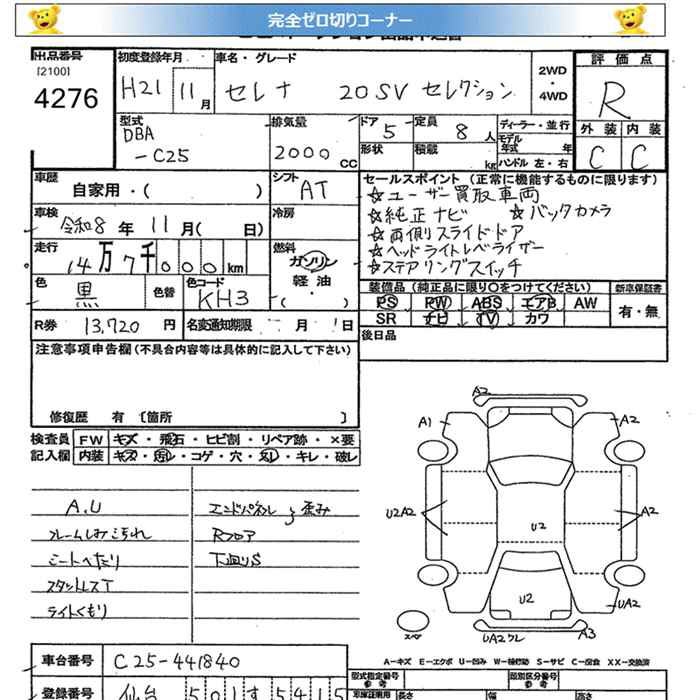 完全ゼロ切りコーナー
出品番号
[2100]
4276
初度登録年月
H21 11月
車名・グレード
セレナ 20SV セレクション
2WD
・
4WD
評価点
R
外装 内装
C C
型式
DBA
-C25
排気量
2000 CC
ドア 5
定員 8 人
形状
積載 kg
ディーラー・並行
モデル年式 年
ハンドル 左・右
車歴
自家用・( )
シフト
AT
セールスポイント (正常に機能するものに限ります)
☆ユーザー買取車両
☆純正ナビ ☆バックカメラ
☆両側スライドドア
☆ヘッドライトレベライザー
☆ステアリングスイッチ
車検
令和8年11月( 日)
冷房
走行
14万7千000km
燃料
ガソリン
軽油
・( )
色
黒
色替
色コード
KH3
装備品(純正品に限り○をつけてください)
新車保証書
PS PW ABS エアB AW
SR ナビ TV カワ
有・無
R券 13,720円
名変通知期限 月 日
後日品
注意事項申告欄(不具合内容等は具体的に記入して下さい)
修復歴 有 [箇所 ]
検査員
記入欄
FW キズ・飛石・ヒビ割・リペア跡・×要
内装 キズ・汚レ・コゲ・穴・スレ・キレ・破レ
A.U
フレームしみこげれ
シートへたり
スタットレスT
ライトくもり
エンドパネル 歪み
Rフロア
下廻りS
A2
A1
A2
U2A2
A2
U2
U2
UA2
UA2ワレ
A3
スペア
A-キズ E-エクボ U-凹み W-補修跡 S-サビ C-腐食 XX-交換済
車台番号
C25-441840
登録番号
仙台 501す5415
型式指定番号
参考
類別区分番号
参考
車庫証明用
長さ
幅
高さ